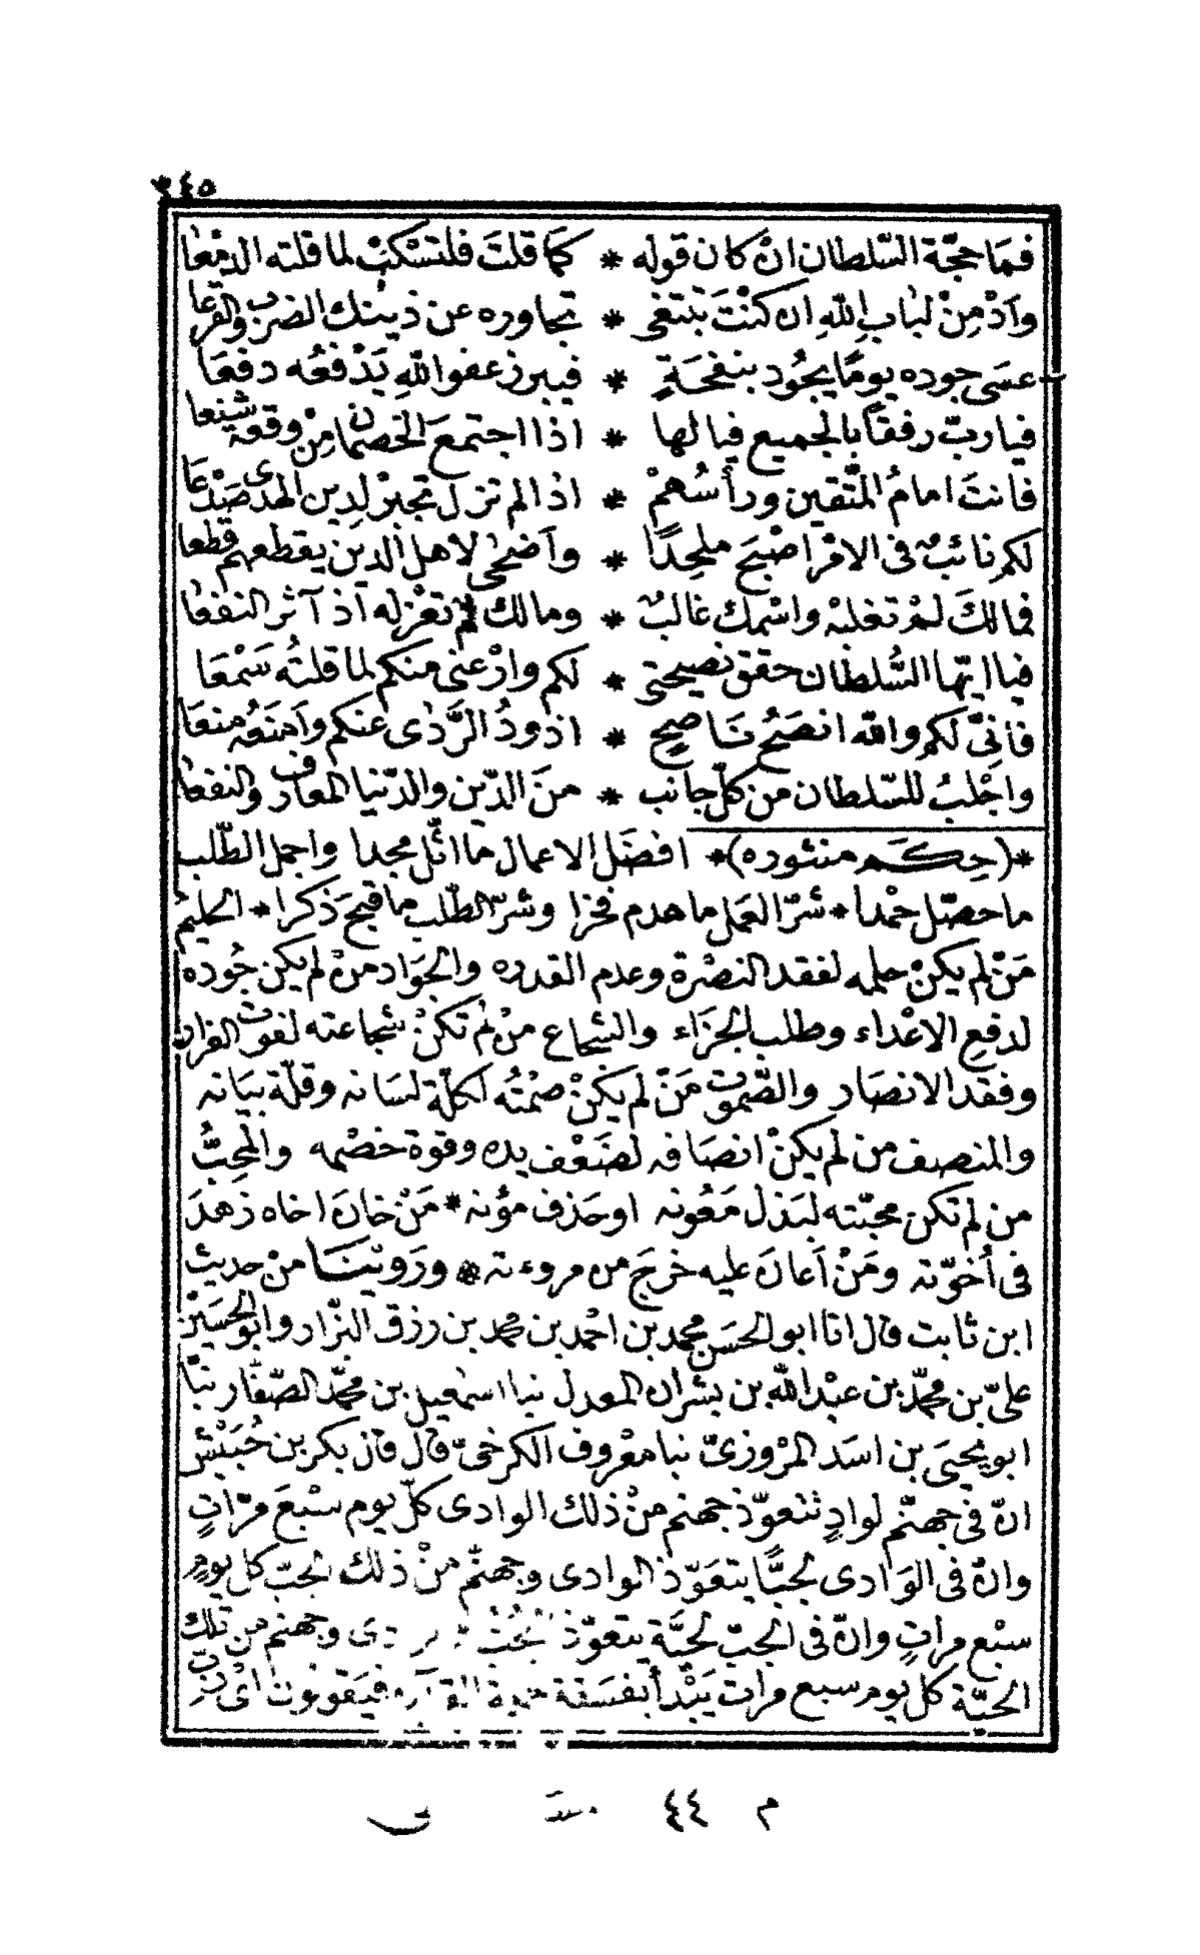 ٣٤٥
فمَا حجّة السّلطان انْ كان قوله * كمَا قلتَ فلتسْكبْ لما قلته الدمْعا
وآذْمِنْ لبابِ اللّهِ ان كنْتَ تبْتغى * تجاوره عن ذينك الضرب والقرعا
عسَى جوده يومًا يجُود بنفحَةٍ * فيبرز عفو اللّهِ يَدْفعُه دفعَا
فيا ربّ رفقاً بالجميع فيا لها * اذا اجتمعَ الخصمان مِنْ وقعة شنعا
فانتَ امامُ المتّقين ورأسُهمْ * اذا لم تزل تجبرْ لدِين الهدى صَدْعَا
لكم نائبٌ فى الافْرا صْبَحَ ملحِدًا * وآضحٰى لاهل الدين يقطعهم قطعا
فمالكَ لمْ تغلبْه واسْمك غالبٌ * ومالك لم تعْزله اذ آثر النفعا
فيا ايّها السُّلطان حقق نصيحتى * لكم وارْعنى منكم لما قلتُه سَمْعَا
فانِّى لكم واللّه انصَحُ نَاصحٍ * اذودُ الرَّدٰى عنكم وآمنَعُه منعَا
واجْلبُ للسّلطان من كلّ جانب * منَ الدّين والدّنيا المعارف والنفعا
*(حِكَم منثوره)* افضَل الاعمال ما اثّل مجدا واجمل الطّلب
ما حصّل حمْدا * شرّ العمَل ما هدم فخرا وشرّ الطّلب ما قبحَ ذكرا * الحليمُ
مَنْ لم يكنْ حلمه لفقد النصْرة وعدم القدره والجوَاد منْ لم يكن جُوده
لدفعِ الاعْداء وطلب الجزَاء والشجاع منْ لم تكنْ شجاعته لفوت الفرار
وفقد الانصَار والصّموت مَنْ لم يكنْ صمْتُه لكلّة لسَانه وقلّة بيَانه
والمنصف من لم يكنْ انصَافه لضَعْف يده وقوة خصْمه والمحِبُّ
من لم تكن محبّته لبَذل مَعُونه اوحَذف مؤنه * مَنْ خانَ اخاه زهدَ
فى أخوّته ومَنْ آعانَ عليه خرجَ من مروءته * ورَويْنَا منْ حديث
ابن ثابت قال انا ابو الحسَن محمد بن احْمد بن محمد بن رزق البزّار وابو الحسَيْن
علىّ بن محمّد بن عبْد اللّه بن بشران المعدل نبا اسمعيل بن محمّد الصّفّار نبّا
ابو يحيَى بن اسَد المرْوزىّ نبا معْروف الكرخىّ قال قال بكر بن خُبَيْش
انّ فى جهنّم لوادٍ تتعوّذ جهنم منْ ذلك الوادى كلّ يوم سبْعَ مرّاتٍ
وانّ فى الوَادى لجبًّا يتعَوّذ الوادى وجهنّم منْ ذلك الجبّ كل يومٍ
سبْع مراتٍ وانّ فى الجبّ لحيَّة يتعوّذ الجبّ وجهنم من تلك
الحيّة كل يوم سبع مرات يَبْدأ بفسَقة فيَقولون اىْ ربِّ
م ٤٤